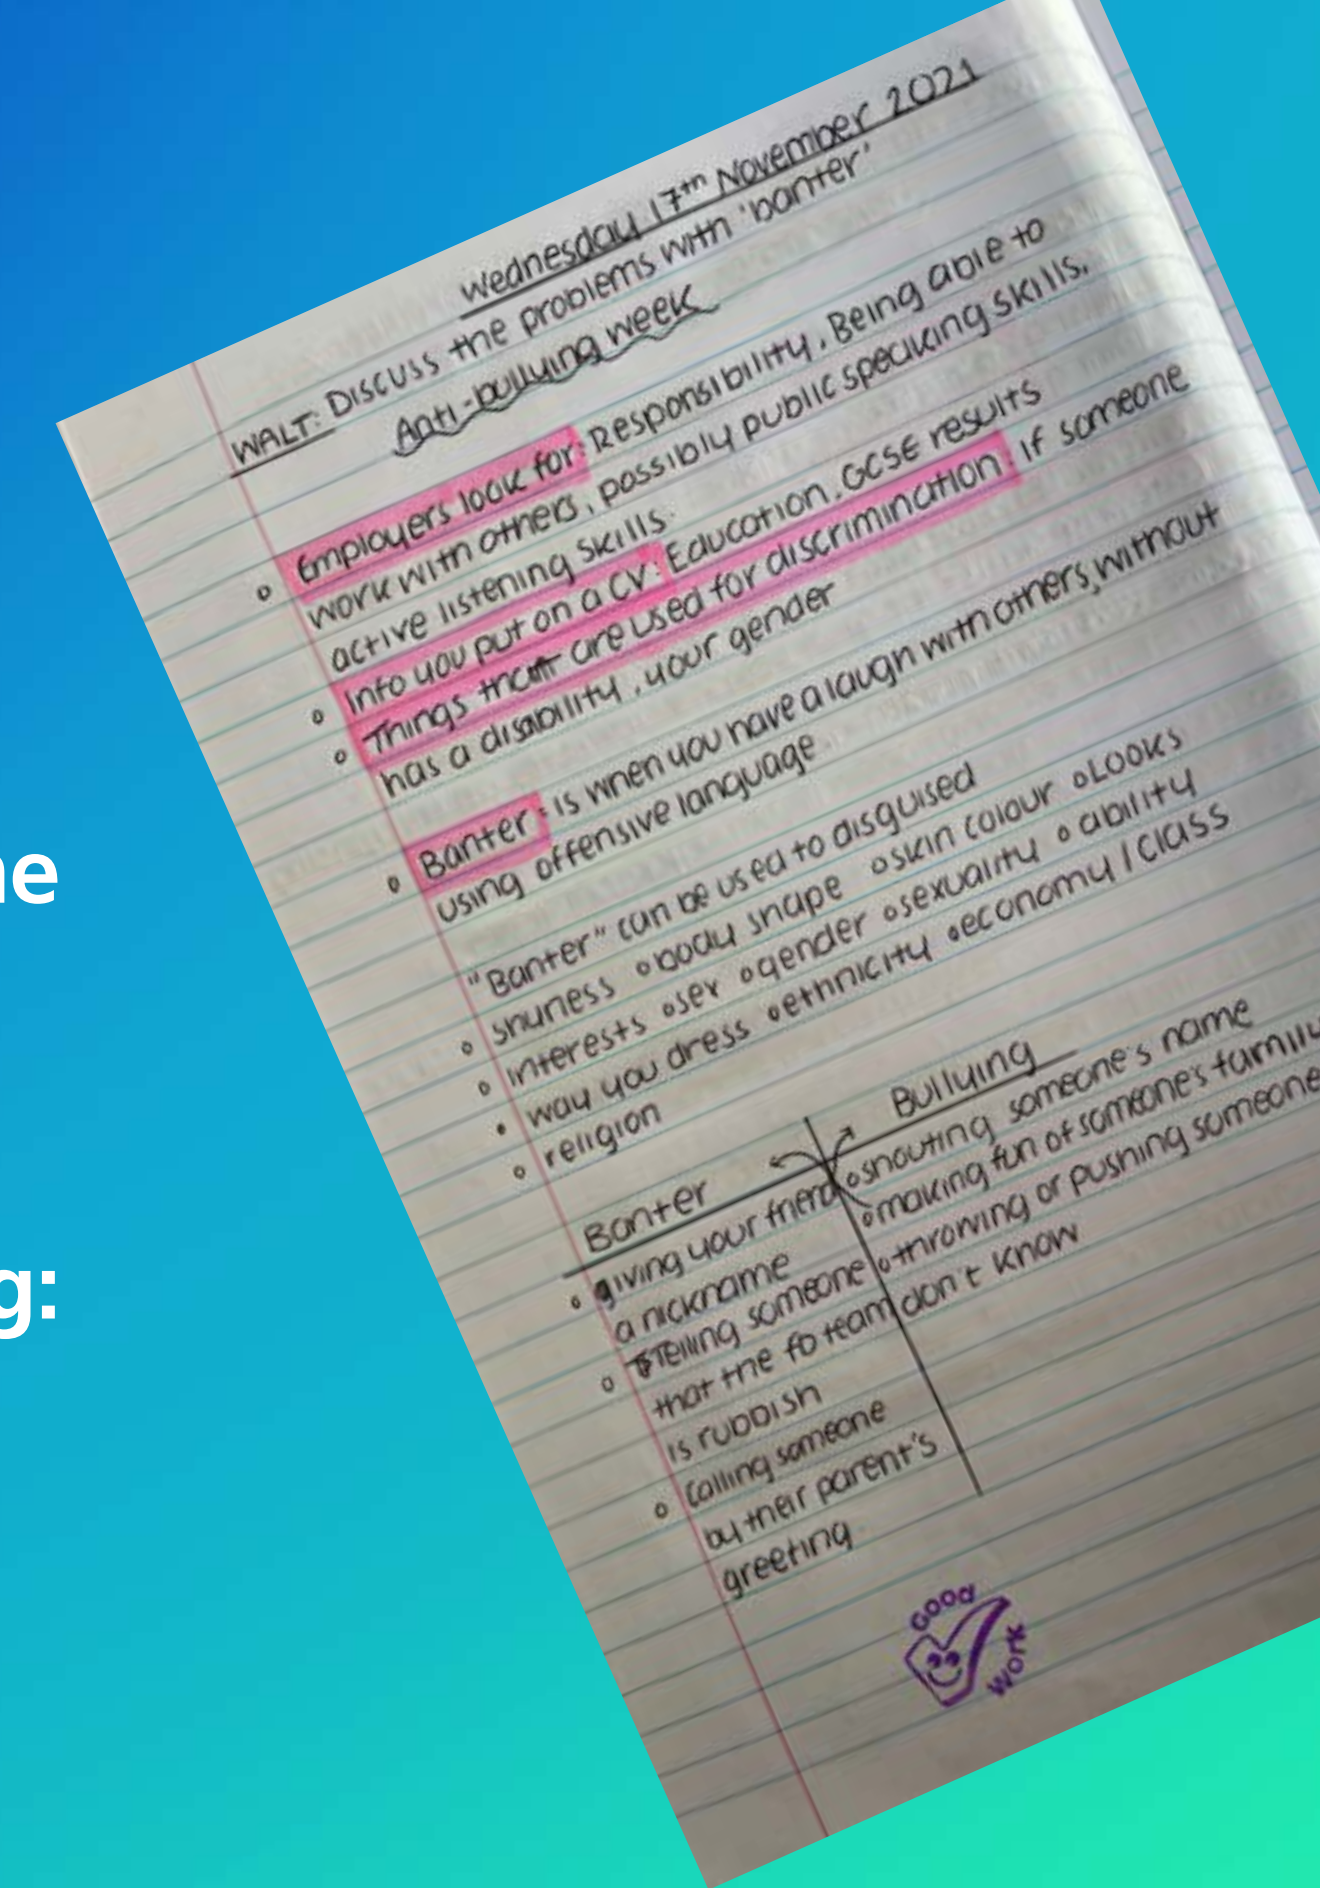 ne
g:
Wednesday 17th November 2021
WALT: Discuss the problems with 'banter'
Anti-bullying week
Employers look for: Responsibility, Being able to
work with others, possibly public speaking skills,
active listening skills.
Info you put on a CV: Education, GCSE results
Things that are used for discrimination: If someone
has a disability, your gender
Banter: is when you have a laugh with others, without
using offensive language
"Banter" can be used to disguised
shyness ∘body shape ∘skin colour ∘Looks
interests ∘sex ∘gender ∘sexuality ∘ability
way you dress ∘ethnicity ∘economy / class
religion
Banter
∘ giving your friend
a nickname
∘ Telling someone
that the fo team
is rubbish
∘ Calling someone
by their parent's
greeting
Bullying
∘shouting someone's name
∘making fun of someone's family
∘throwing or pushing someone
don't know
GOOD
WORK